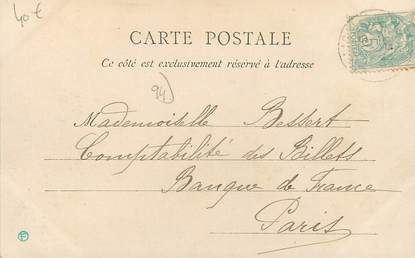 40 €
CARTE POSTALE
Ce côté est exclusivement réservé à l'adresse
94)
Mademoiselle Bessert
Comptabilité des Billets
Banque de France
Paris